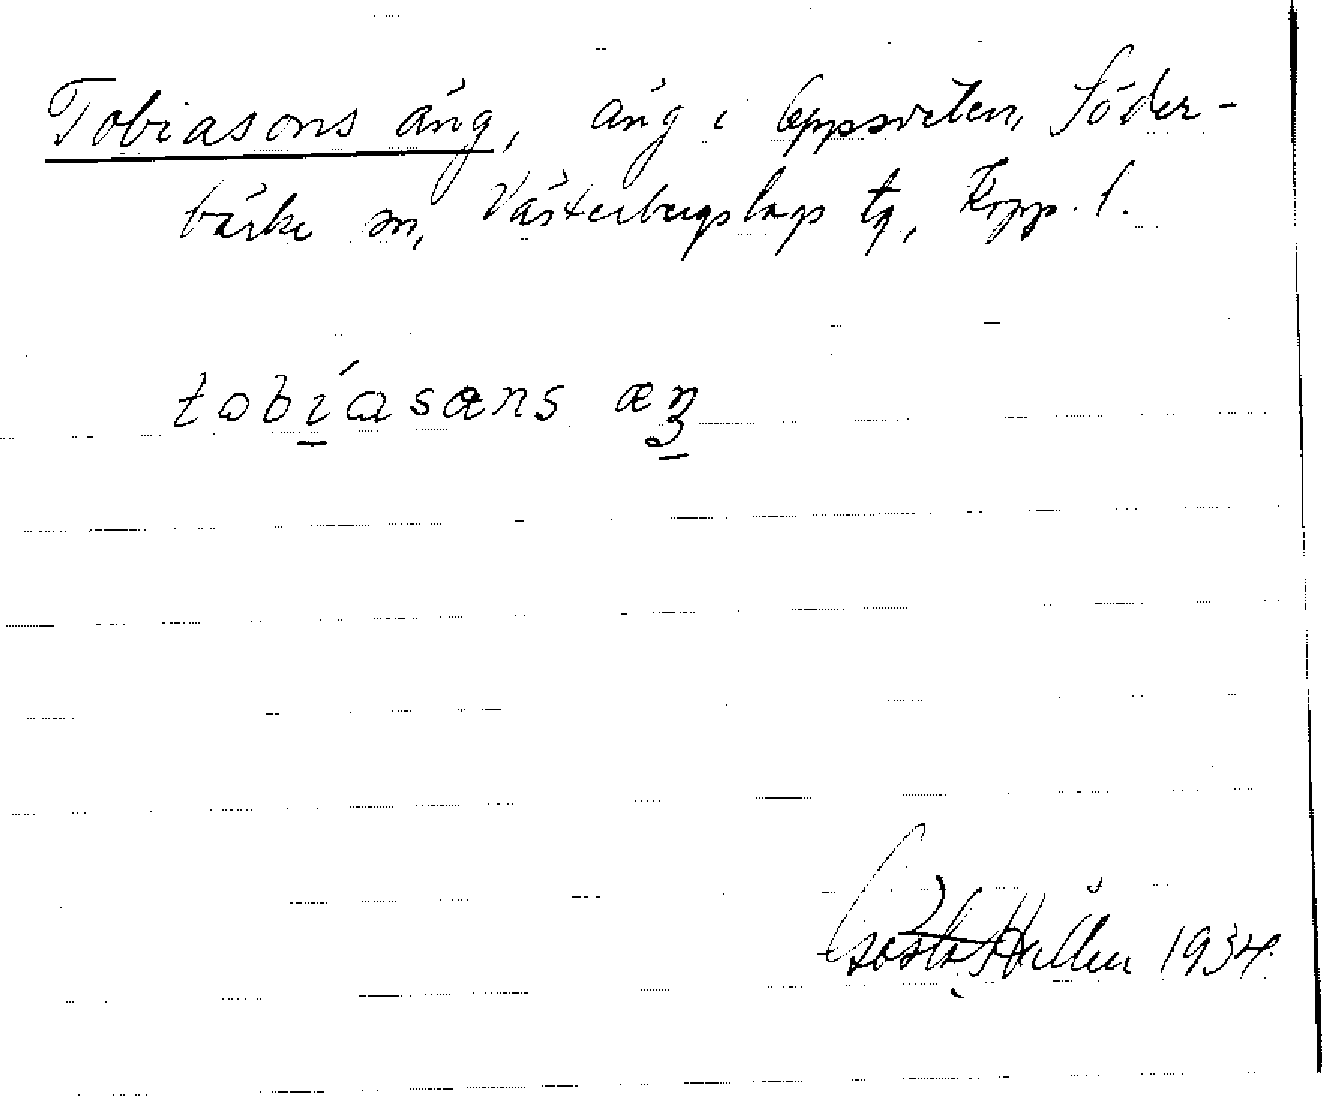 Tobiasons äng, äng i Uppsveten, Söder-
bärke sn, Västerbergslags tg, Kopp. l.
tobíasæns æŋ
Gösta Hallén 1934.